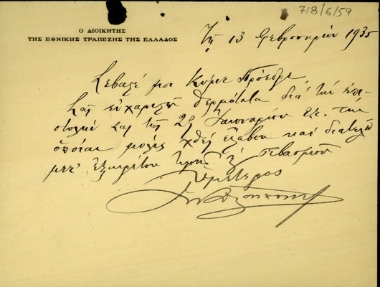 718/6/59
Ο ΔΙΟΙΚΗΤΗΣ
ΤΗΣ ΕΘΝΙΚΗΣ ΤΡΑΠΕΖΗΣ ΤΗΣ ΕΛΛΑΔΟΣ
Τῇ 13 Φεβρουαρίου 1935
Σεβαστέ μοι Κύριε Πρόεδρε
Σας εὐχαριστῶ θερμότατα διὰ τὴν ἐπι-
στολήν σας τῆς 29 Ἰανουαρίου ἐ.ἔ. τὴν
ὁποίαν μόλις χθὲς ἔλαβον καὶ διατελῶ
μετ' ἐξαιρέτου τιμῆς καὶ σεβασμοῦ
Ὑμέτερος